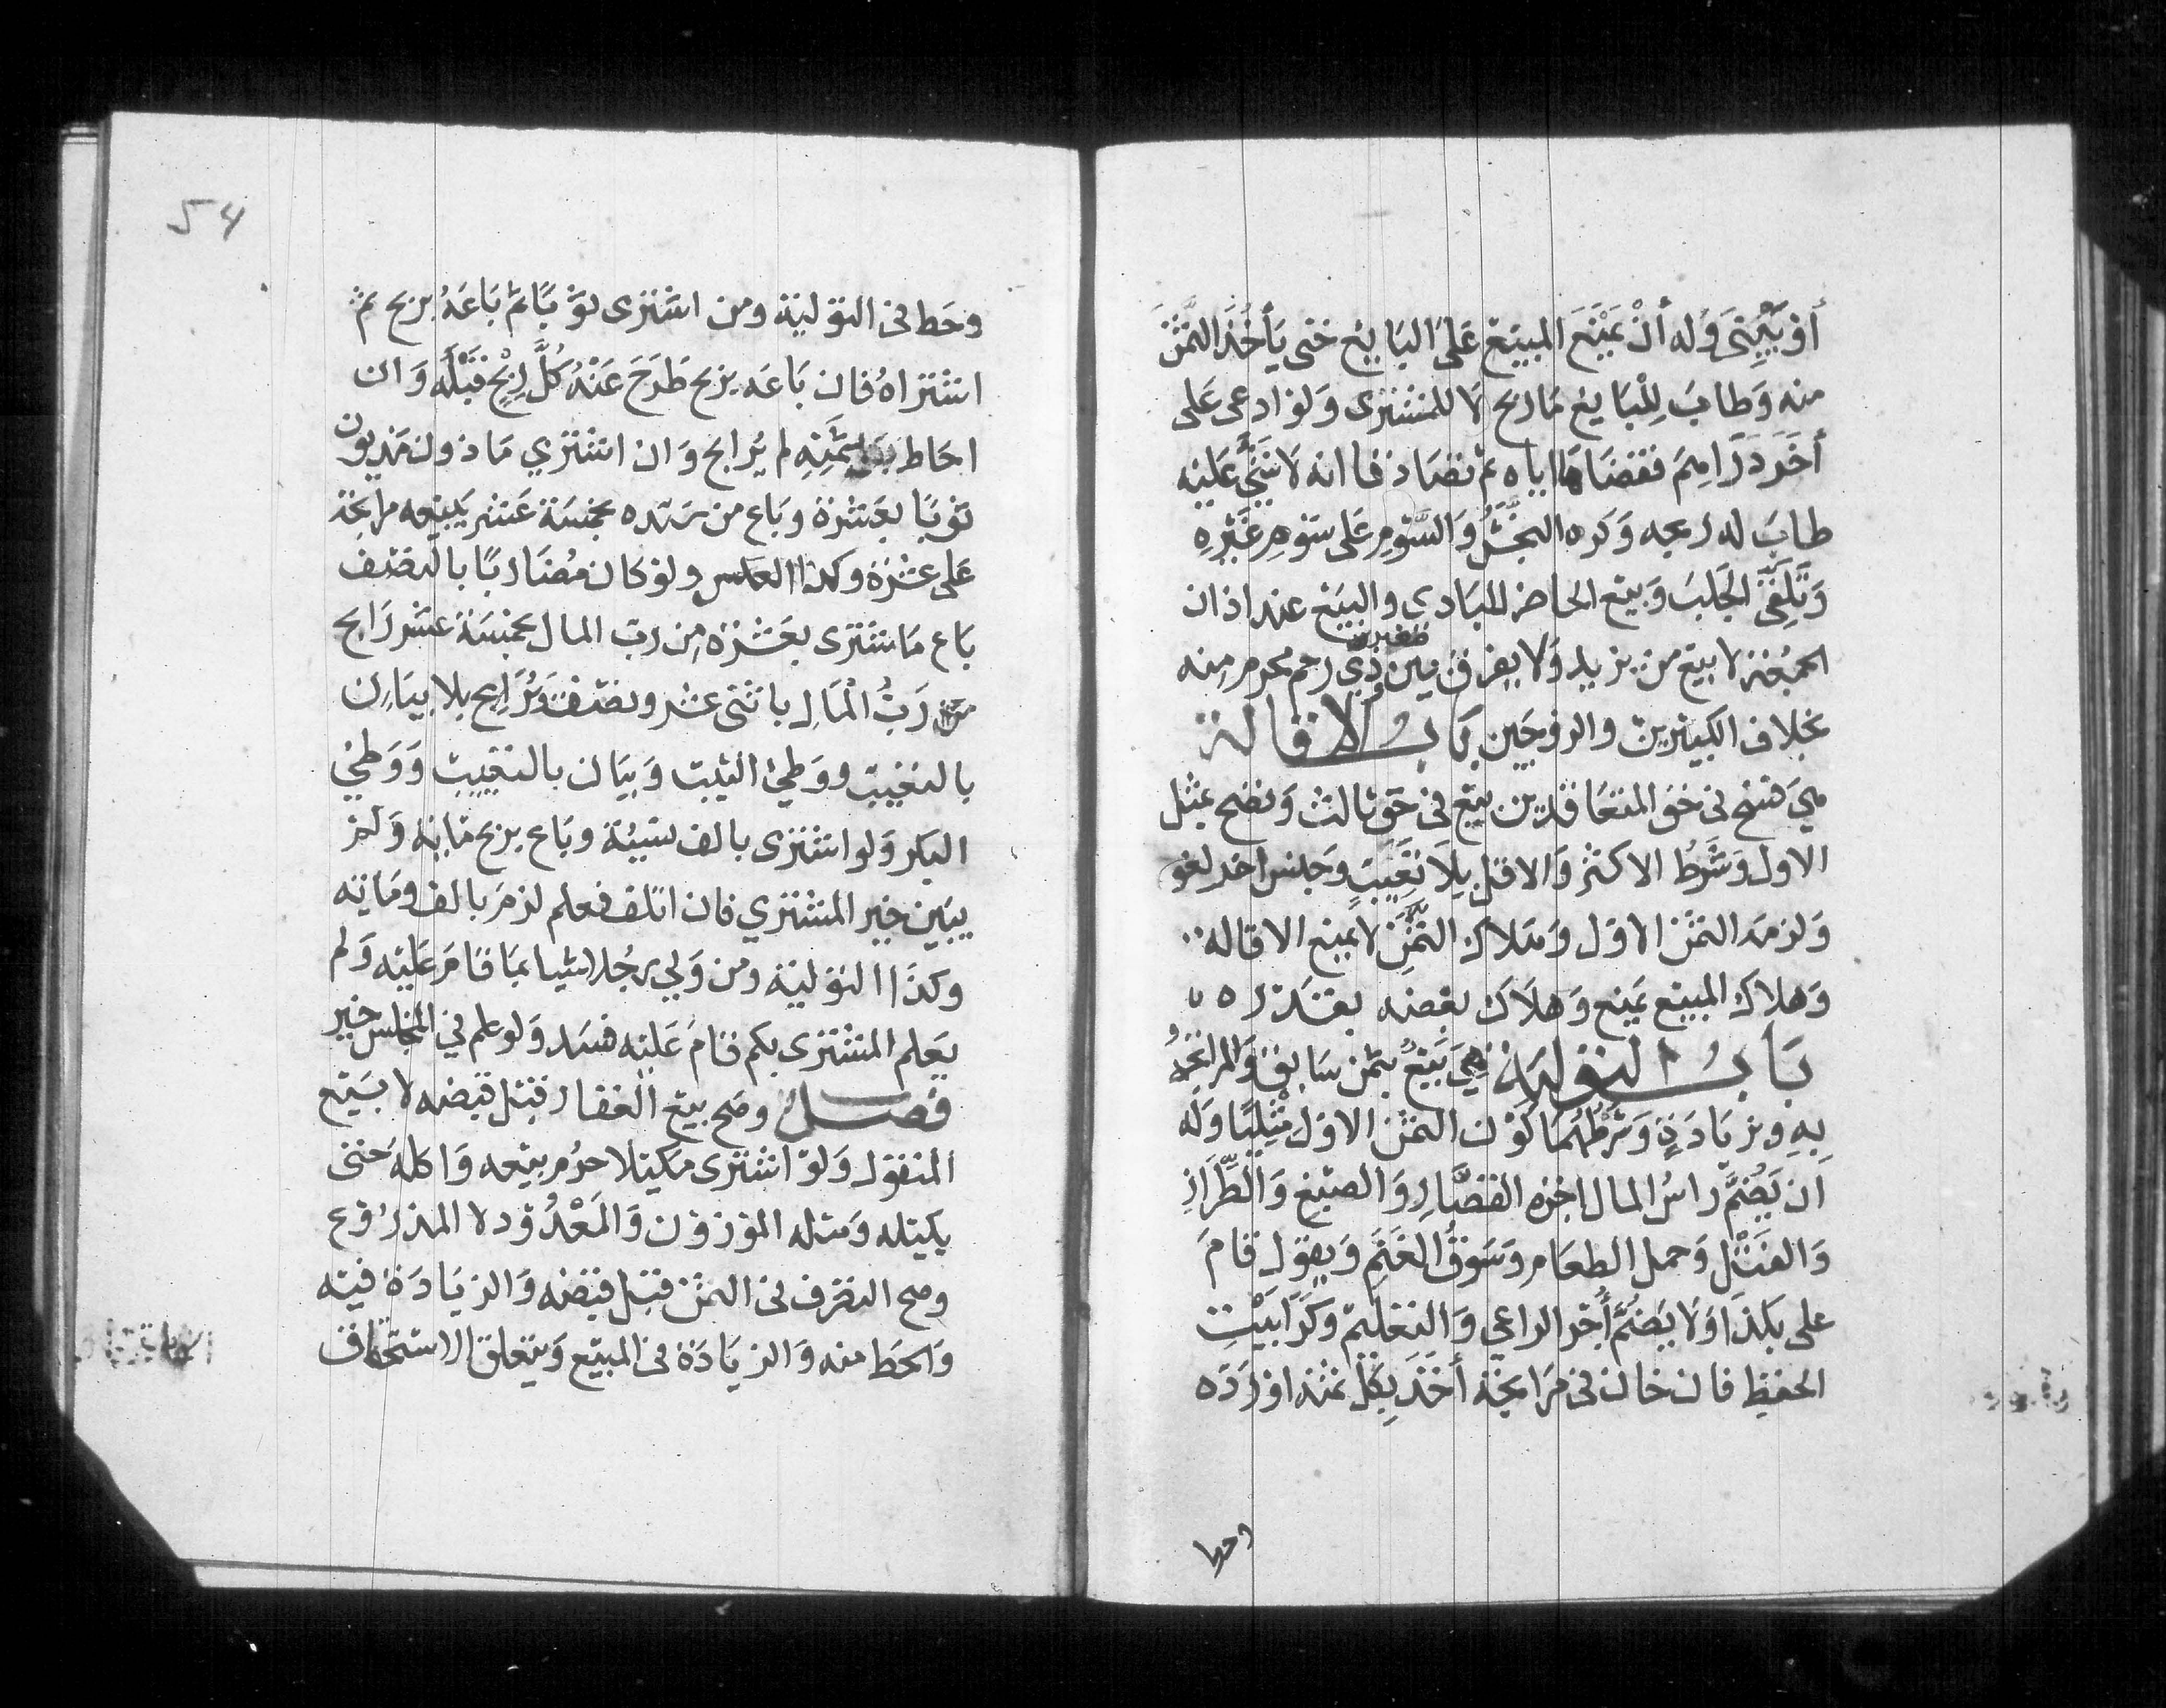 أو يَبْنِيَ وَله أنْ يَمْنَعَ المبيَع عَلى البَايع حَتى يَأخُذَ الثمَنَ
منه وَطابَ لِلْبَايع مَا ربح لا للمشترى وَلو ادعى عَلى
أخَرَ دَرَاهِمَ فقضَاهَا اياه ثم تصَادقا انه لا شَيَّ عَليْه
طابَ له ربحه وَكره النجَشُ وَالسَّوْم عَلى سَوْم غَيْرِهِ
وَتَلَقّى الجَلَبَ وَبيْع الحاضر للبَادي والبيَع عند اذان
الجمُعَة لا بيَع من يزيد وَلا يفرق بَين صغير ذي رحم محرم مِنه
بخلاف الكبيْرين والزوجَين بَابُ الاقالة
هيَ فسْخ في حَق المتعَاقدين بيَع في حَق ثالث وَتصح بمثل
الاول وَشَرطُ الاكثر وَالاقل بِلا تعَيّبَ وَجنس اخر لغو
وَلزمَه الثمَن الاوّل وَهَلاك الثّمَن لا يمنع الاقاله
وَهلاك المبيع يَمنع وَهلَاك بَعضه بقَدْره
بَابُ التوليَة هيَ بَيْعٌ بثمن سَابق وَالمرابَحَةُ
بِهِ وَزيَادَةٍ وَشرْطهُمَا كوْن الثمَن الاول مثْلِيًّا وَلَه
اَن يَضُمَّ رَاسُ المال اجْره القصَّارِ وَالصبْغ وَالطِّرَازِ
وَالفَتْل وَحمل الطعَام وَسَوقُ الغَنَم وَيقوْل قامَ
على بكَذَا وَلَا يَضُمّ أجْرَ الراعي وَالتعْليمْ وَكِرَا بَيْتِ
الحفظِ فان خان في مرَابحَة أخَذَ بِكُلّ ثمَنه اوْ رَدَّه
وحط
وحَط في التوْليَة ومن اشترى ثوْبًا ثمَّ بَاعَهُ بربح ثم
اشْتراهُ فان بَاعَه بربح طَرَحَ عَنْهُ كُلَّ رِبْحٍ قبْلَهُ وَان
احَاط بثمَنِه لم يُرابح وَان اشْتري مَاذون مَديون
ثوْبًا بعَشْرَة وبَاع من سَيّده بخمْسَة عَشر يَبيْعه مرَابحَة
عَلى عشْرَة وكذا العكس ولوْ كان مُضَاربًا بالنصْف
بَاع مَا اشترى بعَشْرَه من ربّ المال بخمسَة عشر رَابح
رَبُّ الْمَالِ باثنى عشر وَنصْف وَيُرَابِح بلا بيَان
بالتعْييب وَوَطْئ الثيّب وَبيَان بالتعْييب وَوَطْيُ
البكر وَلو اشترى بالف نسيْئَة وبَاع بربح مَايَة وَلم
يبَين خير المشْتري فان اتلف فعلم لزمَ بالف ومَايَه
وكذَا التوْليَة ومن وَلى رجُلا شيا بمَا قامَ عَليْه وَلم
يَعلم المشْترى بكم قامَ عَليْه فسَد وَلو علم في المجلس خير
فصل وصَح بيع العَقار قبْل قبْضه لا بيَع
المنقول وَلوْ اشْترى مَكيْلا حرُم بيْعه وَاكله حَتى
يكيله وَمثله الموْزوْن وَالمَعْدُوْد لا المذرُوْع
وصح التصَرف في الثمَن قبْل قبْضه وَالزيَادَة فيْه
وَالحَط منه وَالزيَادَة في المبيْع وَيتعلق الاستحقاق
54